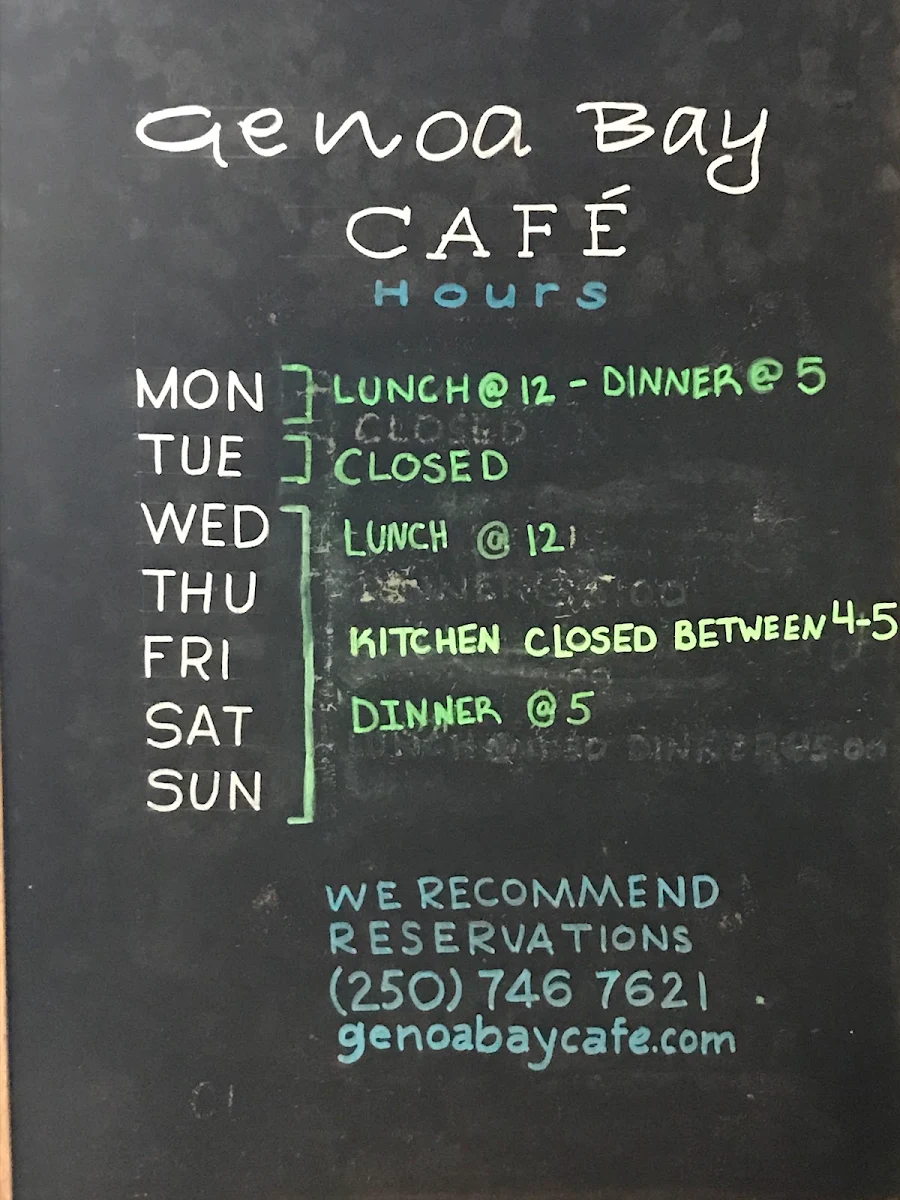 Genoa Bay
CAFÉ
Hours
MON LUNCH @ 12 - DINNER @ 5
CLOSED
TUE CLOSED
WED LUNCH @ 12
THU
KITCHEN CLOSED BETWEEN 4-5
FRI
SAT DINNER @ 5
SUN
WE RECOMMEND
RESERVATIONS
(250) 746 7621
genoabaycafe.com